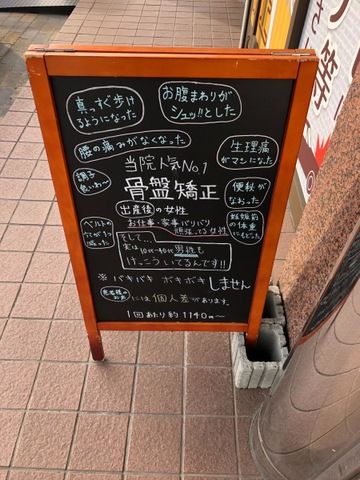 真っすぐ歩け
るようになった
お腹まわりが
シュッ!!とした
腰の痛みがなくなった
生理痛
がマシになった
調子
良いわ〜
当院人気No.1
骨盤矯正
便秘が
なおった
出産後の女性
お仕事・家事バリバリ
頑張ってる女性
ベルトの
穴が1つ
減った
妊娠前
の体重
にもどった
そして…
実は10代〜40代男性も
けっこういてるんです!!
※バキバキ ボキボキしません
患者様の
お声
には個人差があります。
1回あたり約1140円〜